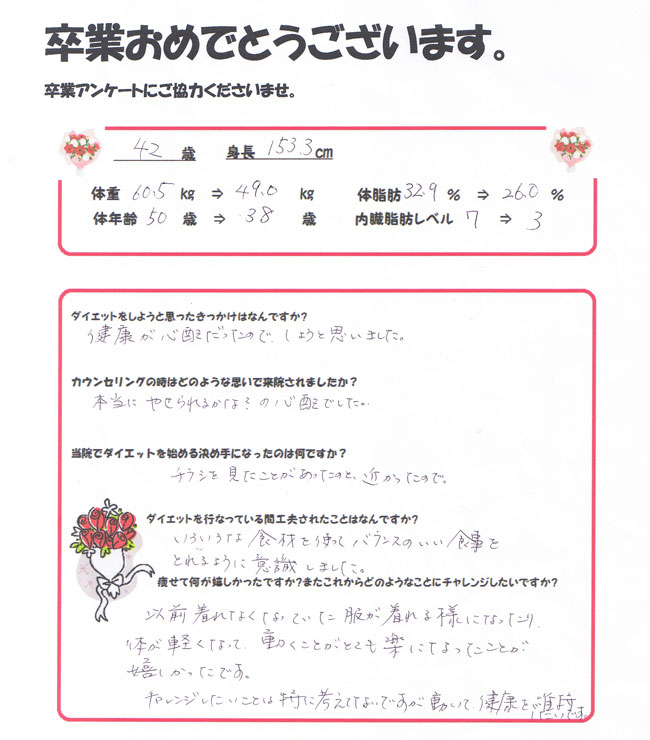 卒業おめでとうございます。
卒業アンケートにご協力くださいませ。
42 歳 身長 153.3cm
体重 60.5 kg ⇒ 49.0 kg 体脂肪 32.9 % ⇒ 26.0 %
体年齢 50 歳 ⇒ 38 歳 内臓脂肪レベル 7 ⇒ 3
ダイエットをしようと思ったきっかけはなんですか?
健康が心配だったので、しようと思いました。
カウンセリングの時はどのような思いで来院されましたか?
本当にやせられるかな?の心配でした。
当院でダイエットを始める決め手になったのは何ですか?
チラシを見たことがあったのと、近かったので。
ダイエットを行なっている間工夫されたことはなんですか?
いろいろな食材を使ってバランスのいい食事を
とれるように意識しました。
痩せて何が嬉しかったですか?またこれからどのようなことにチャレンジしたいですか?
以前着れなくなっていた服が着れる様になったり、
体が軽くなって、動くことがとても楽になったことが
嬉しかったです。
チャレンジしたいことは特に考えてないですが動いて、健康を維持
したいです。